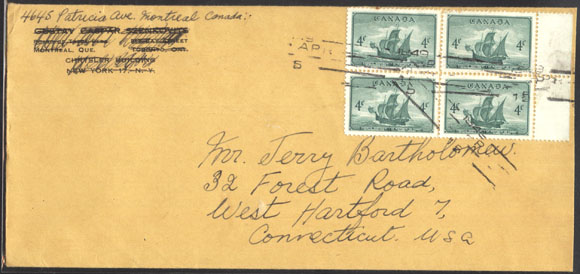 4645 Patricia Ave. Montreal Canada:-
MONTREAL, QUE. TORONTO, ONT.
CHRYSLER BUILDING
NEW YORK 17, N. Y.
CANADA
4¢ 4¢
CANADA
4¢ 4¢
4¢ 4¢
4¢ 4¢
APR
5
Mr. Jerry Bartholomew.
32 Forest Road,
West Hartford 7,
Connecticut. USA